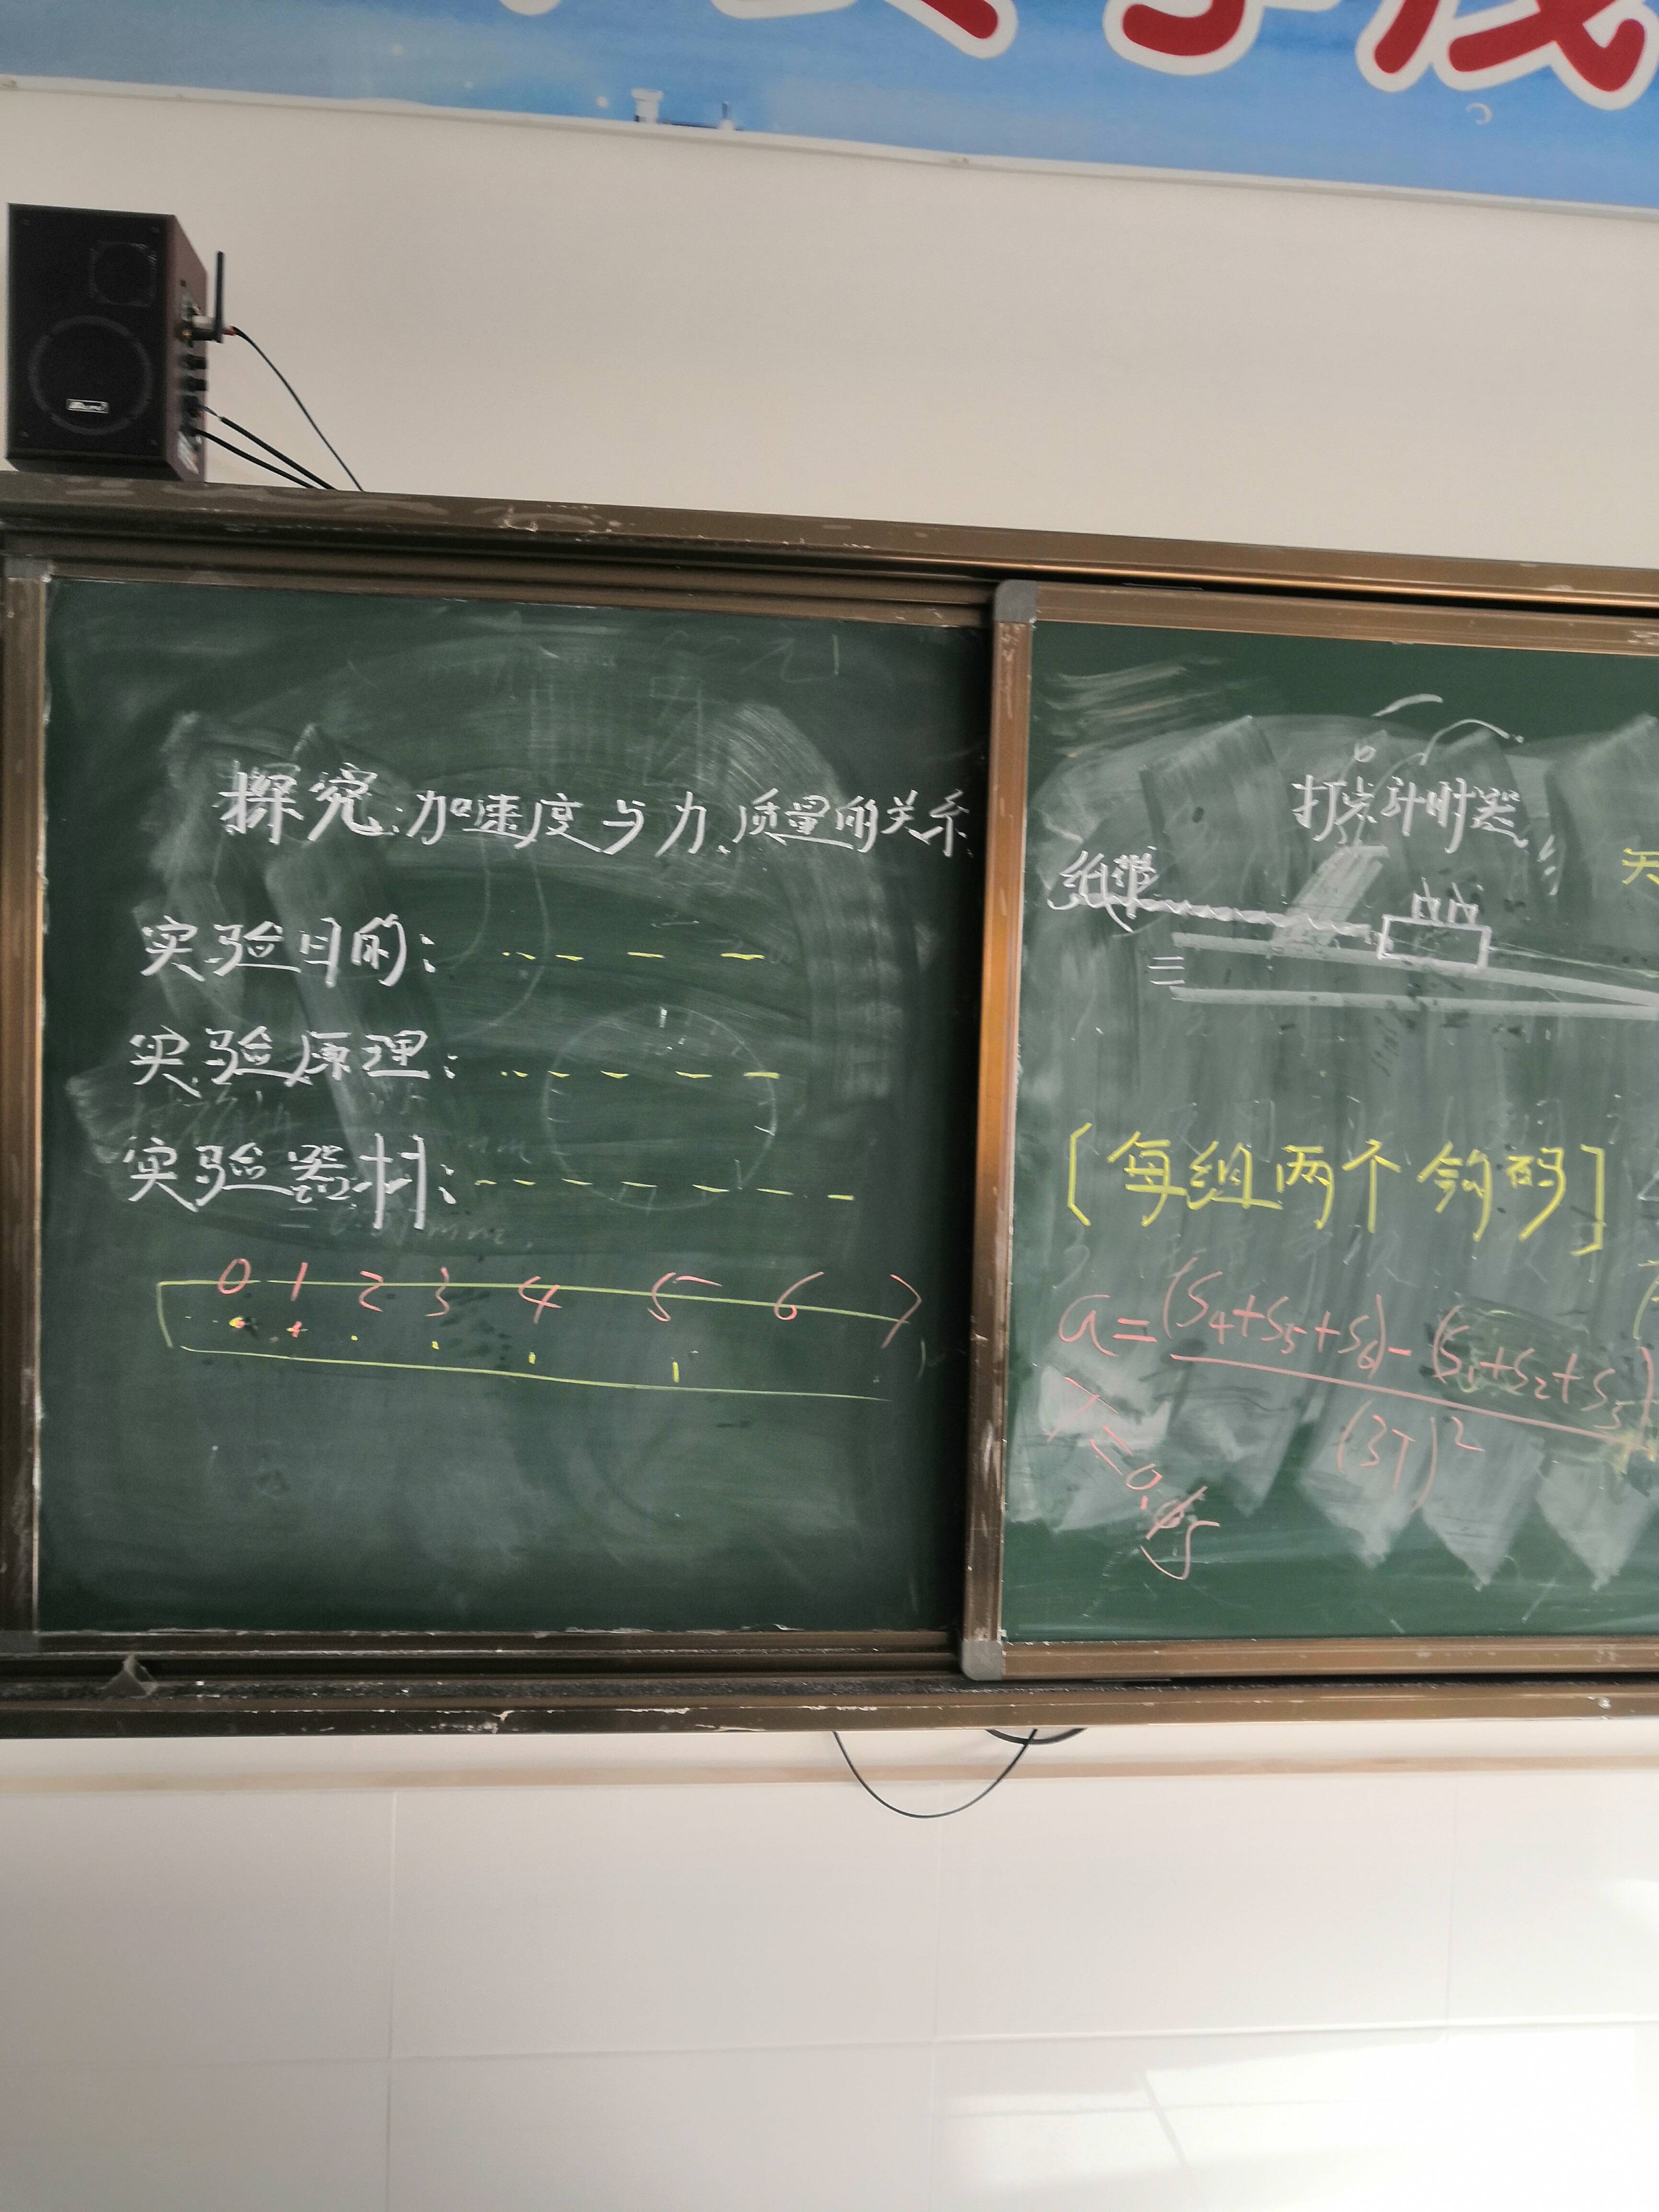 探究:加速度与力、质量的关系
实验目的:
实验原理:
实验器材:
0 1 2 3 4 5 6 7
打点计时器
纸带
[每组两个钩码]
a=(S4+S5+S6)-(S1+S2+S3)
(3T)²